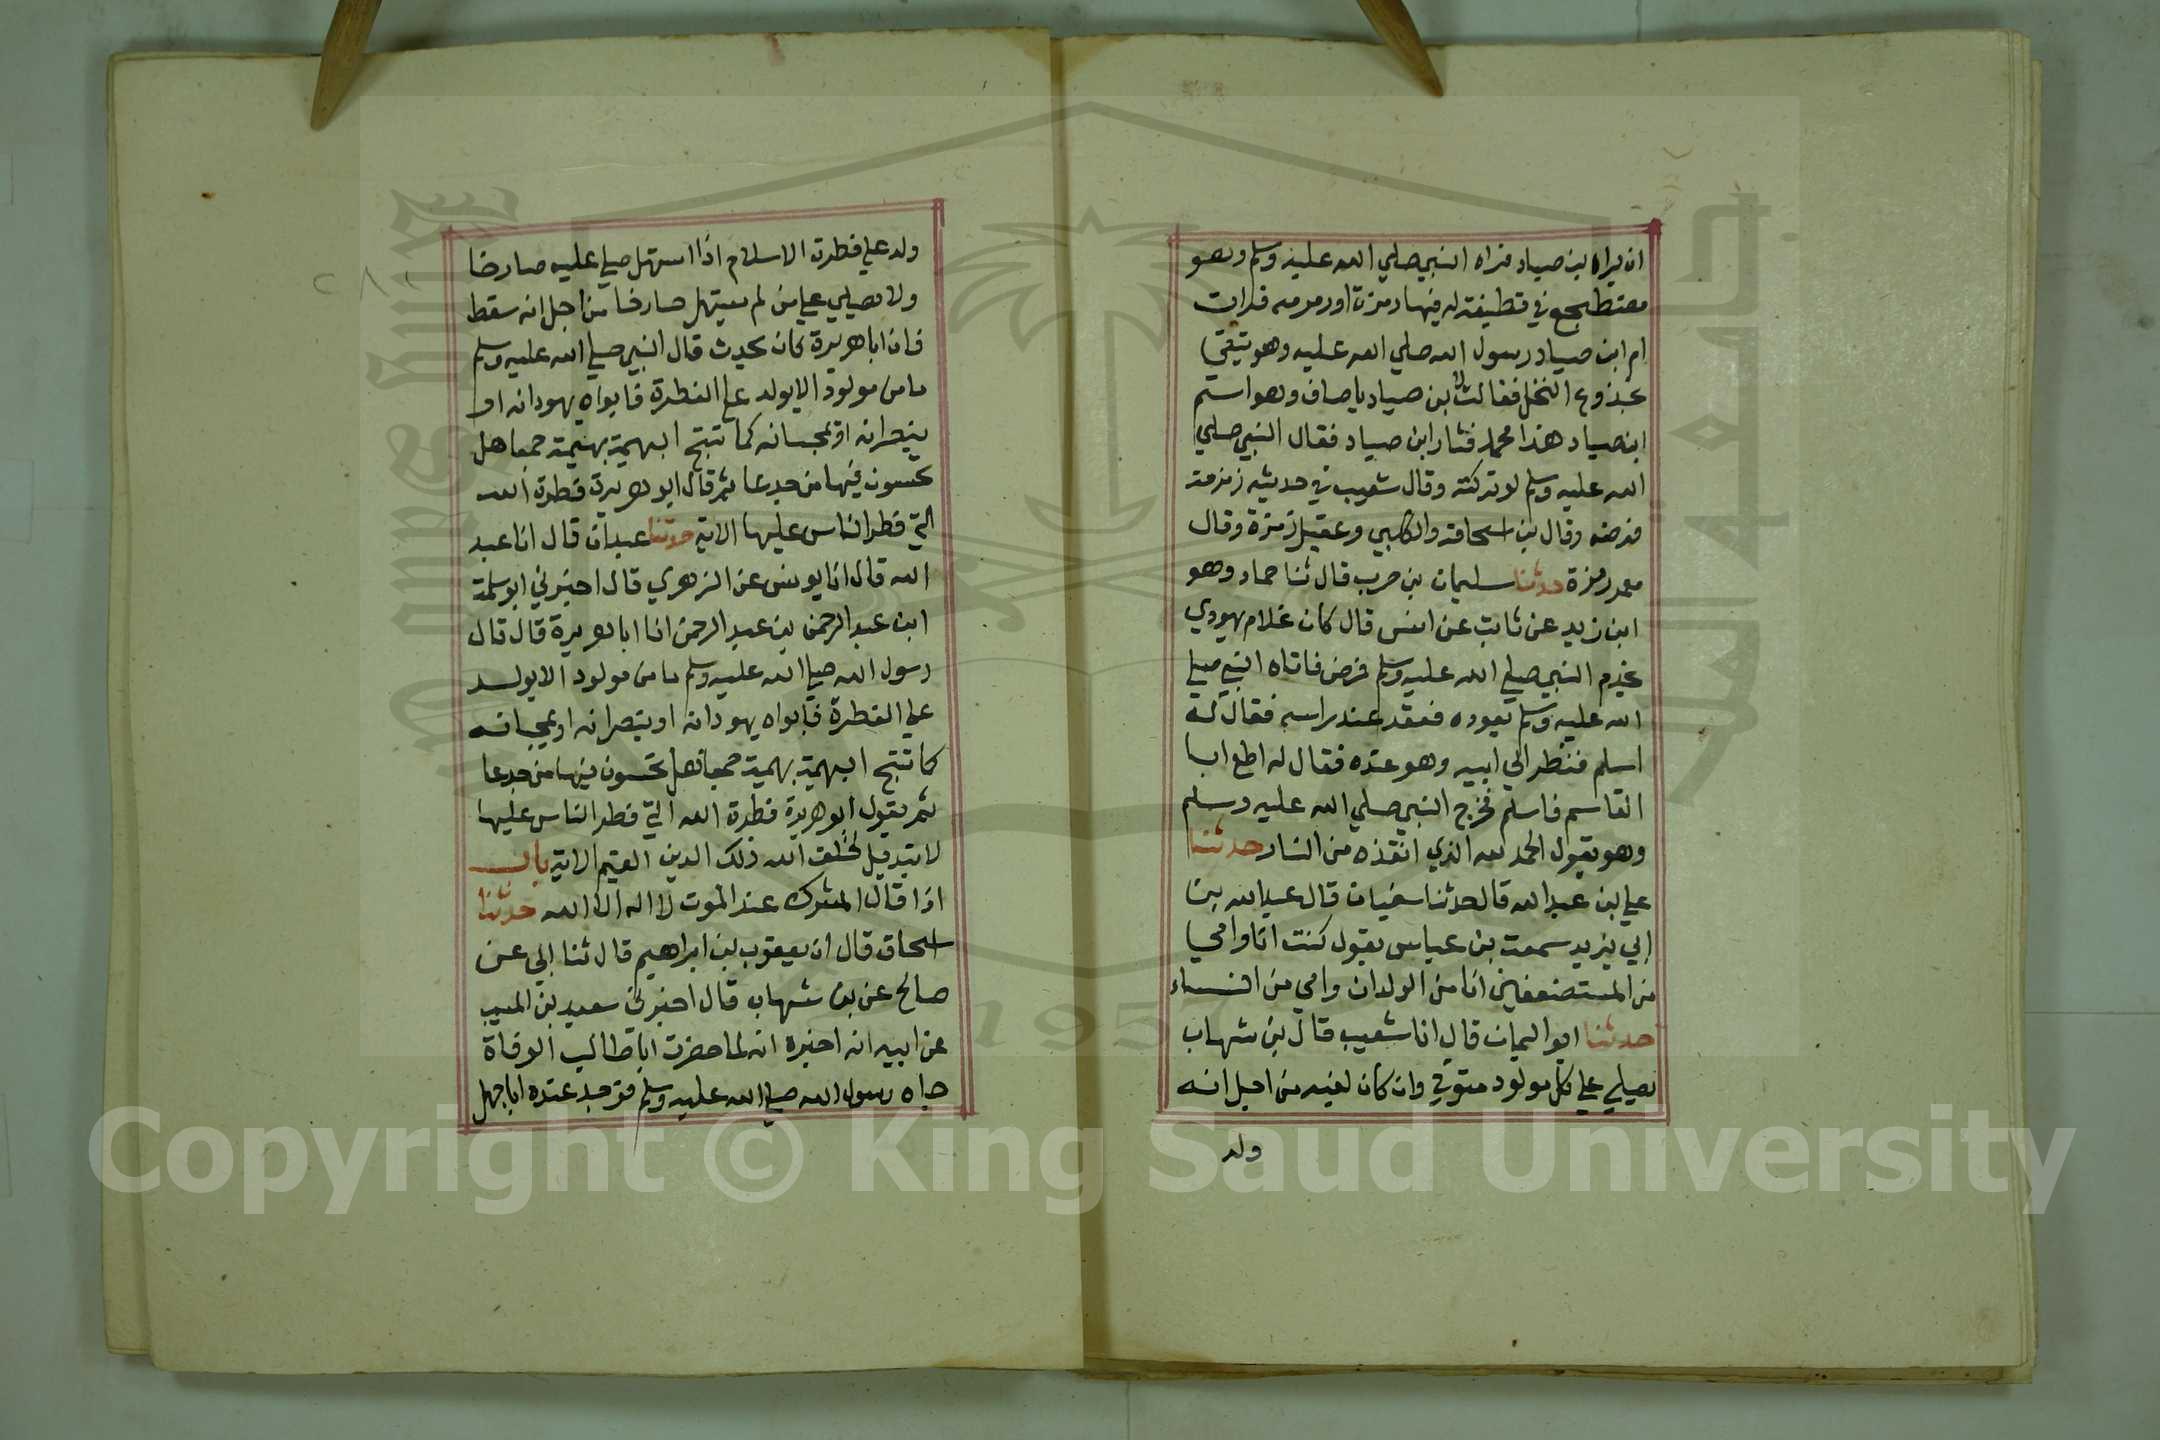 ان يراه بن صياد فراه النبي صلي الله عليه وسلم وهو
مضطجع في قطيفة له فيها رمزة او زمرمه فرات
ام ابن صياد رسول الله صلي الله عليه وهو يتقي
بجذوع النخل فقالت لابن صياد يا صاف وهو اسم
ابن صياد هذا محمد فثار ابن صياد فقال النبي صلي
الله عليه وسلم لو تركته وقال شعيب في حديثه زمزمة
فرضه وقال بن اسحاق والكلبي وعقيل رمزة وقال
معمر رمزة حدثنا سليمان بن حرب قال ثنا حماد وهو
ابن زيد عن ثابت عن انس قال كان غلام يهودي
يخدم النبي صلي الله عليه وسلم فرض فاتاه النبي صلي
الله عليه وسلم يعوده فقعد عند راسه فقال له
اسلم فنظر الي ابيه وهو عنده فقال له اطع ابا
القاسم فاسلم فخرج النبي صلي الله عليه وسلم
وهو يقول الحمد لله الذي انقذه من النار حدثنا
علي بن عبد الله قال حدثنا سفيان قال عبيد الله بن
ابي يزيد سمعت بن عباس يقول كنت انا وامي
من المستضعفين انا من الولدان وامي من النساء
حدثنا ابو اليمان قال انا شعيب قال بن شهاب
يصلي علي كل مولود متوفي وان كان لغيه من اجل انه
ولد
ولد علي فطرة الاسلام اذا استهل صلي عليه صارخا
ولا يصلي علي من لم يستهل صارخا من اجل انه سقط
فان ابا هريرة كان يحدث قال النبي صلي الله عليه وسلم
ما من مولود الا يولد علي الفطرة فابواه يهودانه او
ينصرانه او يمجسانه كما تنتج البهيمة بهيمة جمعا هل
تحسون فيها من جدعا ثم قال ابو هريرة فطرة الله
التي فطر الناس عليها الاية حدثنا عبدان قال انا عبد
الله قال انا يونس عن الزهري قال اخبرني ابو سلمة
ابن عبد الرحمن بن عبد الرحمن انا ابا هريرة قال قال
رسول الله صلي الله عليه وسلم ما من مولود الا يولد
علي الفطرة فابواه يهودانه او ينصرانه او يمجسانه
كما تنتج البهيمة بهيمة جمعا هل تحسون فيها من جدعا
ثم يقول ابو هريرة فطرة الله التي فطر الناس عليها
لا تبديل لخلق الله ذلك الدين القيم الاية باب
اذا قال المشرك عند الموت لا اله الا الله حدثنا
اسحاق قال ان يعقوب بن ابراهيم قال ثنا ابي عن
صالح عن بن شهاب قال اخبرني سعيد بن المسيب
عن ابيه انه اخبره انه لما حضرت ابا طالب الوفاة
جاه رسول الله صلي الله عليه وسلم فوجد عنده ابا جهل
1957
Copyright © King Saud University